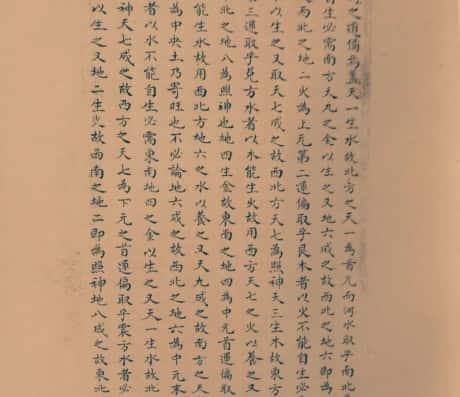 之道偏為蓋天一生水故北方之天一為首元而河水取乎南北
自生必需南方天九之金以生之又地六成之故西北之地六即為
西北之地二火為上元第二運偏取乎艮木者以火不能自生必
以生之又取天七成之故西北方天七為照神天三生木故東方
三運取乎兌方水者以木能生火故用西方天七之火以養之又
北之地八為照神也地四生金故東南之地四為中元首運偏取
能生水故用西北方地六之水以養之又天九成之故南方之天
為中央土乃寄旺也不必論地六成之故西北之地六為中元末
者以水不能自生必需東南地四之金以生之又天一生水故北
神天七成之故西方之天七為下元之首運偏取乎震方水者必
以生之又地二生火故西南之地二即為照神地八成之故東北